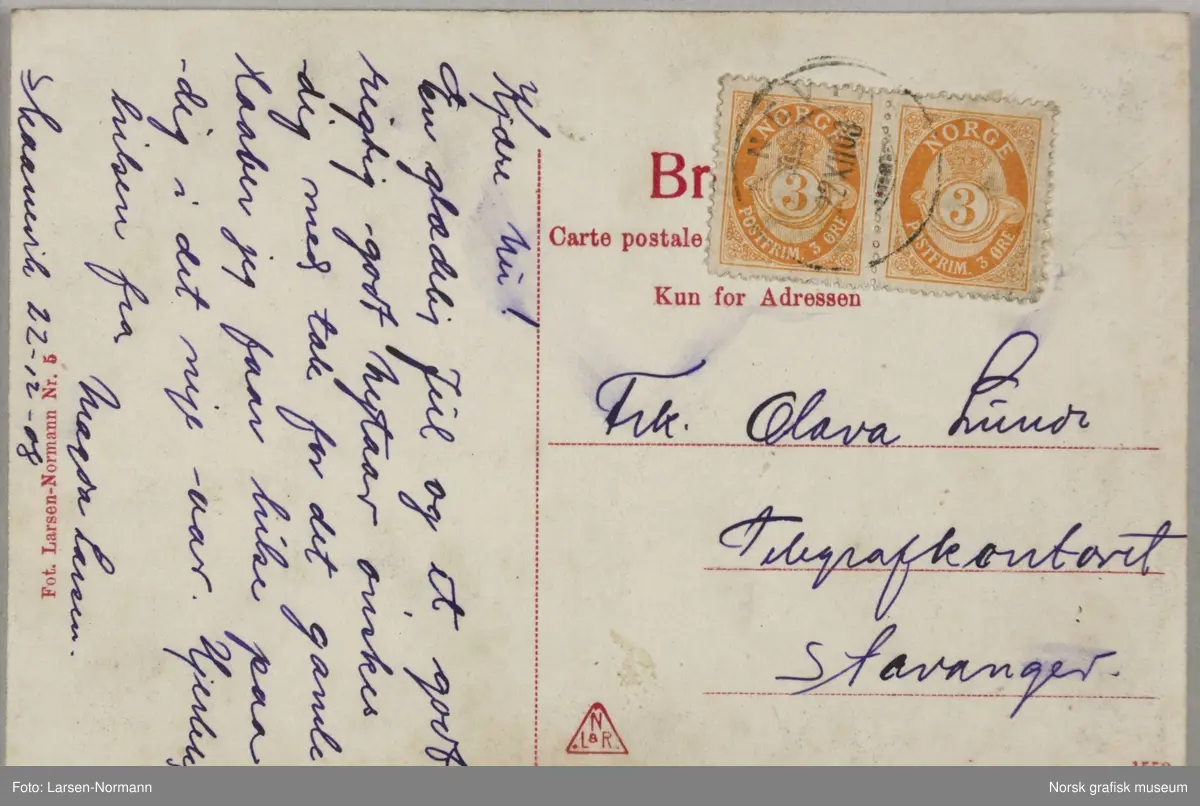 Br
Carte postale
Kun for Adressen
NORGE
3
POSTFRIM. 3 ØRE
22 XII 08
NORGE
3
POSTFRIM. 3 ØRE
Frk. Olava Lunde
Telegrafkontoret
Stavanger.
Kjære
En glædelig Jul og et godt
rigtig godt nytaar ønskes
dig med tak for det gamle
Haaber jeg faar hilse paa
dig i det nye aar. Hjertelig
hilsen fra
Larsen.
22-12-08
Fot. Larsen-Normann Nr. 5
N
L&R.
Foto: Larsen-Normann
Norsk grafisk museum